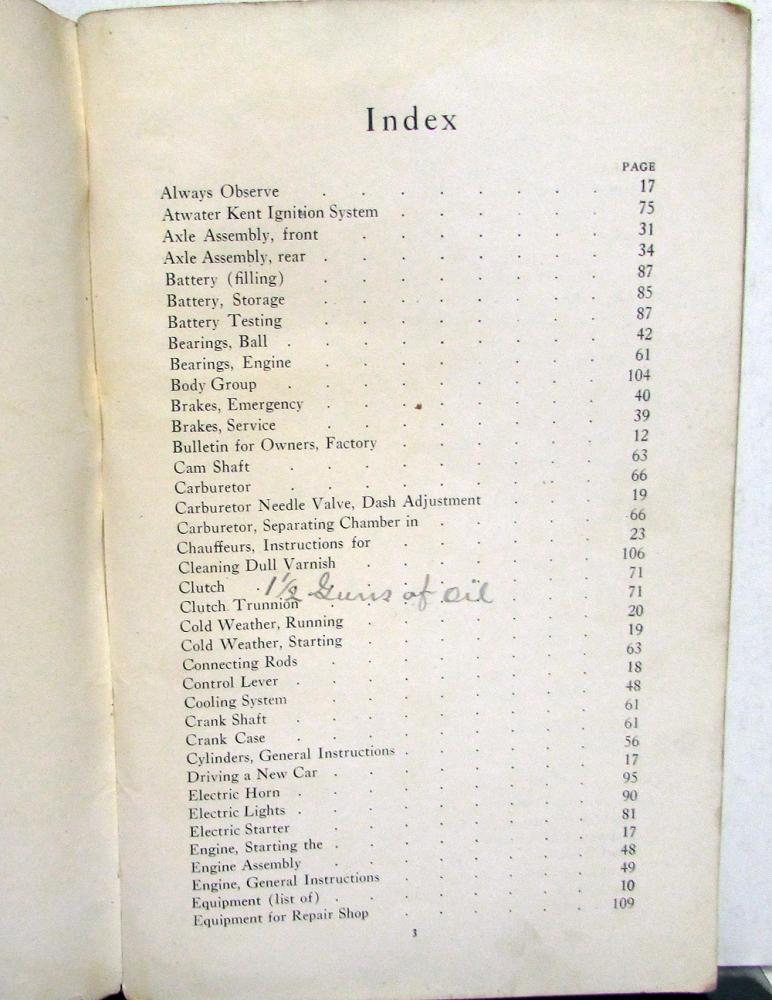 Index
PAGE
Always Observe . . . . . . . . 17
Atwater Kent Ignition System . . . . . . 75
Axle Assembly, front . . . . . . . 31
Axle Assembly, rear . . . . . . . . 34
Battery (filling) . . . . . . . . 87
Battery, Storage . . . . . . . . 85
Battery Testing . . . . . . . . 87
Bearings, Ball . . . . . . . . . 42
Bearings, Engine . . . . . . . . 61
Body Group . . . . . . . . . 104
Brakes, Emergency . . . . . . . . 40
Brakes, Service . . . . . . . . 39
Bulletin for Owners, Factory . . . . . . 12
Cam Shaft . . . . . . . . . 63
Carburetor . . . . . . . . . 66
Carburetor Needle Valve, Dash Adjustment . . . 19
Carburetor, Separating Chamber in . . . . . 66
Chauffeurs, Instructions for . . . . . . 23
Cleaning Dull Varnish . . . . . . . 106
Clutch . 1½ Guns of oil . . . 71
Clutch Trunnion . . . . . . . . 71
Cold Weather, Running . . . . . . . 20
Cold Weather, Starting . . . . . . . 19
Connecting Rods . . . . . . . . 63
Control Lever . . . . . . . . . 18
Cooling System . . . . . . . . 48
Crank Shaft . . . . . . . . . 61
Crank Case . . . . . . . . . 61
Cylinders, General Instructions . . . . . . 56
Driving a New Car . . . . . . . . 17
Electric Horn . . . . . . . . . 95
Electric Lights . . . . . . . . . 90
Electric Starter . . . . . . . . 81
Engine, Starting the . . . . . . . . 17
Engine Assembly . . . . . . . . 48
Engine, General Instructions . . . . . . 49
Equipment (list of) . . . . . . . . 10
Equipment for Repair Shop . . . . . . 109
3